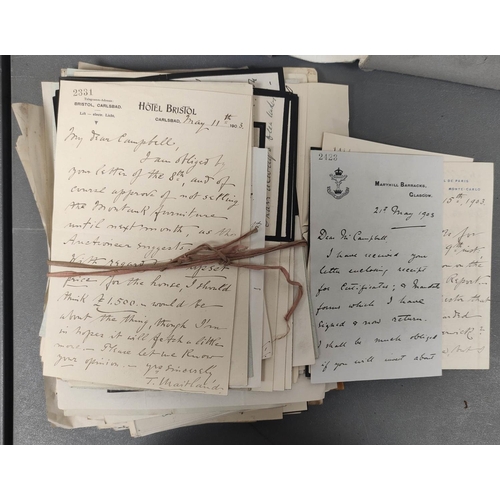 2331
Telegraphic Address:
BRISTOL, CARLSBAD.
HÔTEL BRISTOL
CARLSBAD, May 11th 1903.
My dear Campbell,
I am obliged by
your letter of the 8th, and of
course approve of not selling
the furniture
until next month, as the
Auctioneer suggests.
With regard
price for the house, I should
think £1,500 – would be
about the thing, though I am
in hopes it will fetch a little
more – Please let me know
your opinion. – Yrs. sincerely
T. Maitland.
2428
MARYHILL BARRACKS,
GLASGOW.
21st May 1903
Dear Mr Campbell
I have received your
letter enclosing receipt
for Certificates, & Mandate
forms which I have
signed & now return.
I shall be much obliged
if you will want about
DE PARIS
MONTE-CARLO
15th, 1903.
for
Report
that